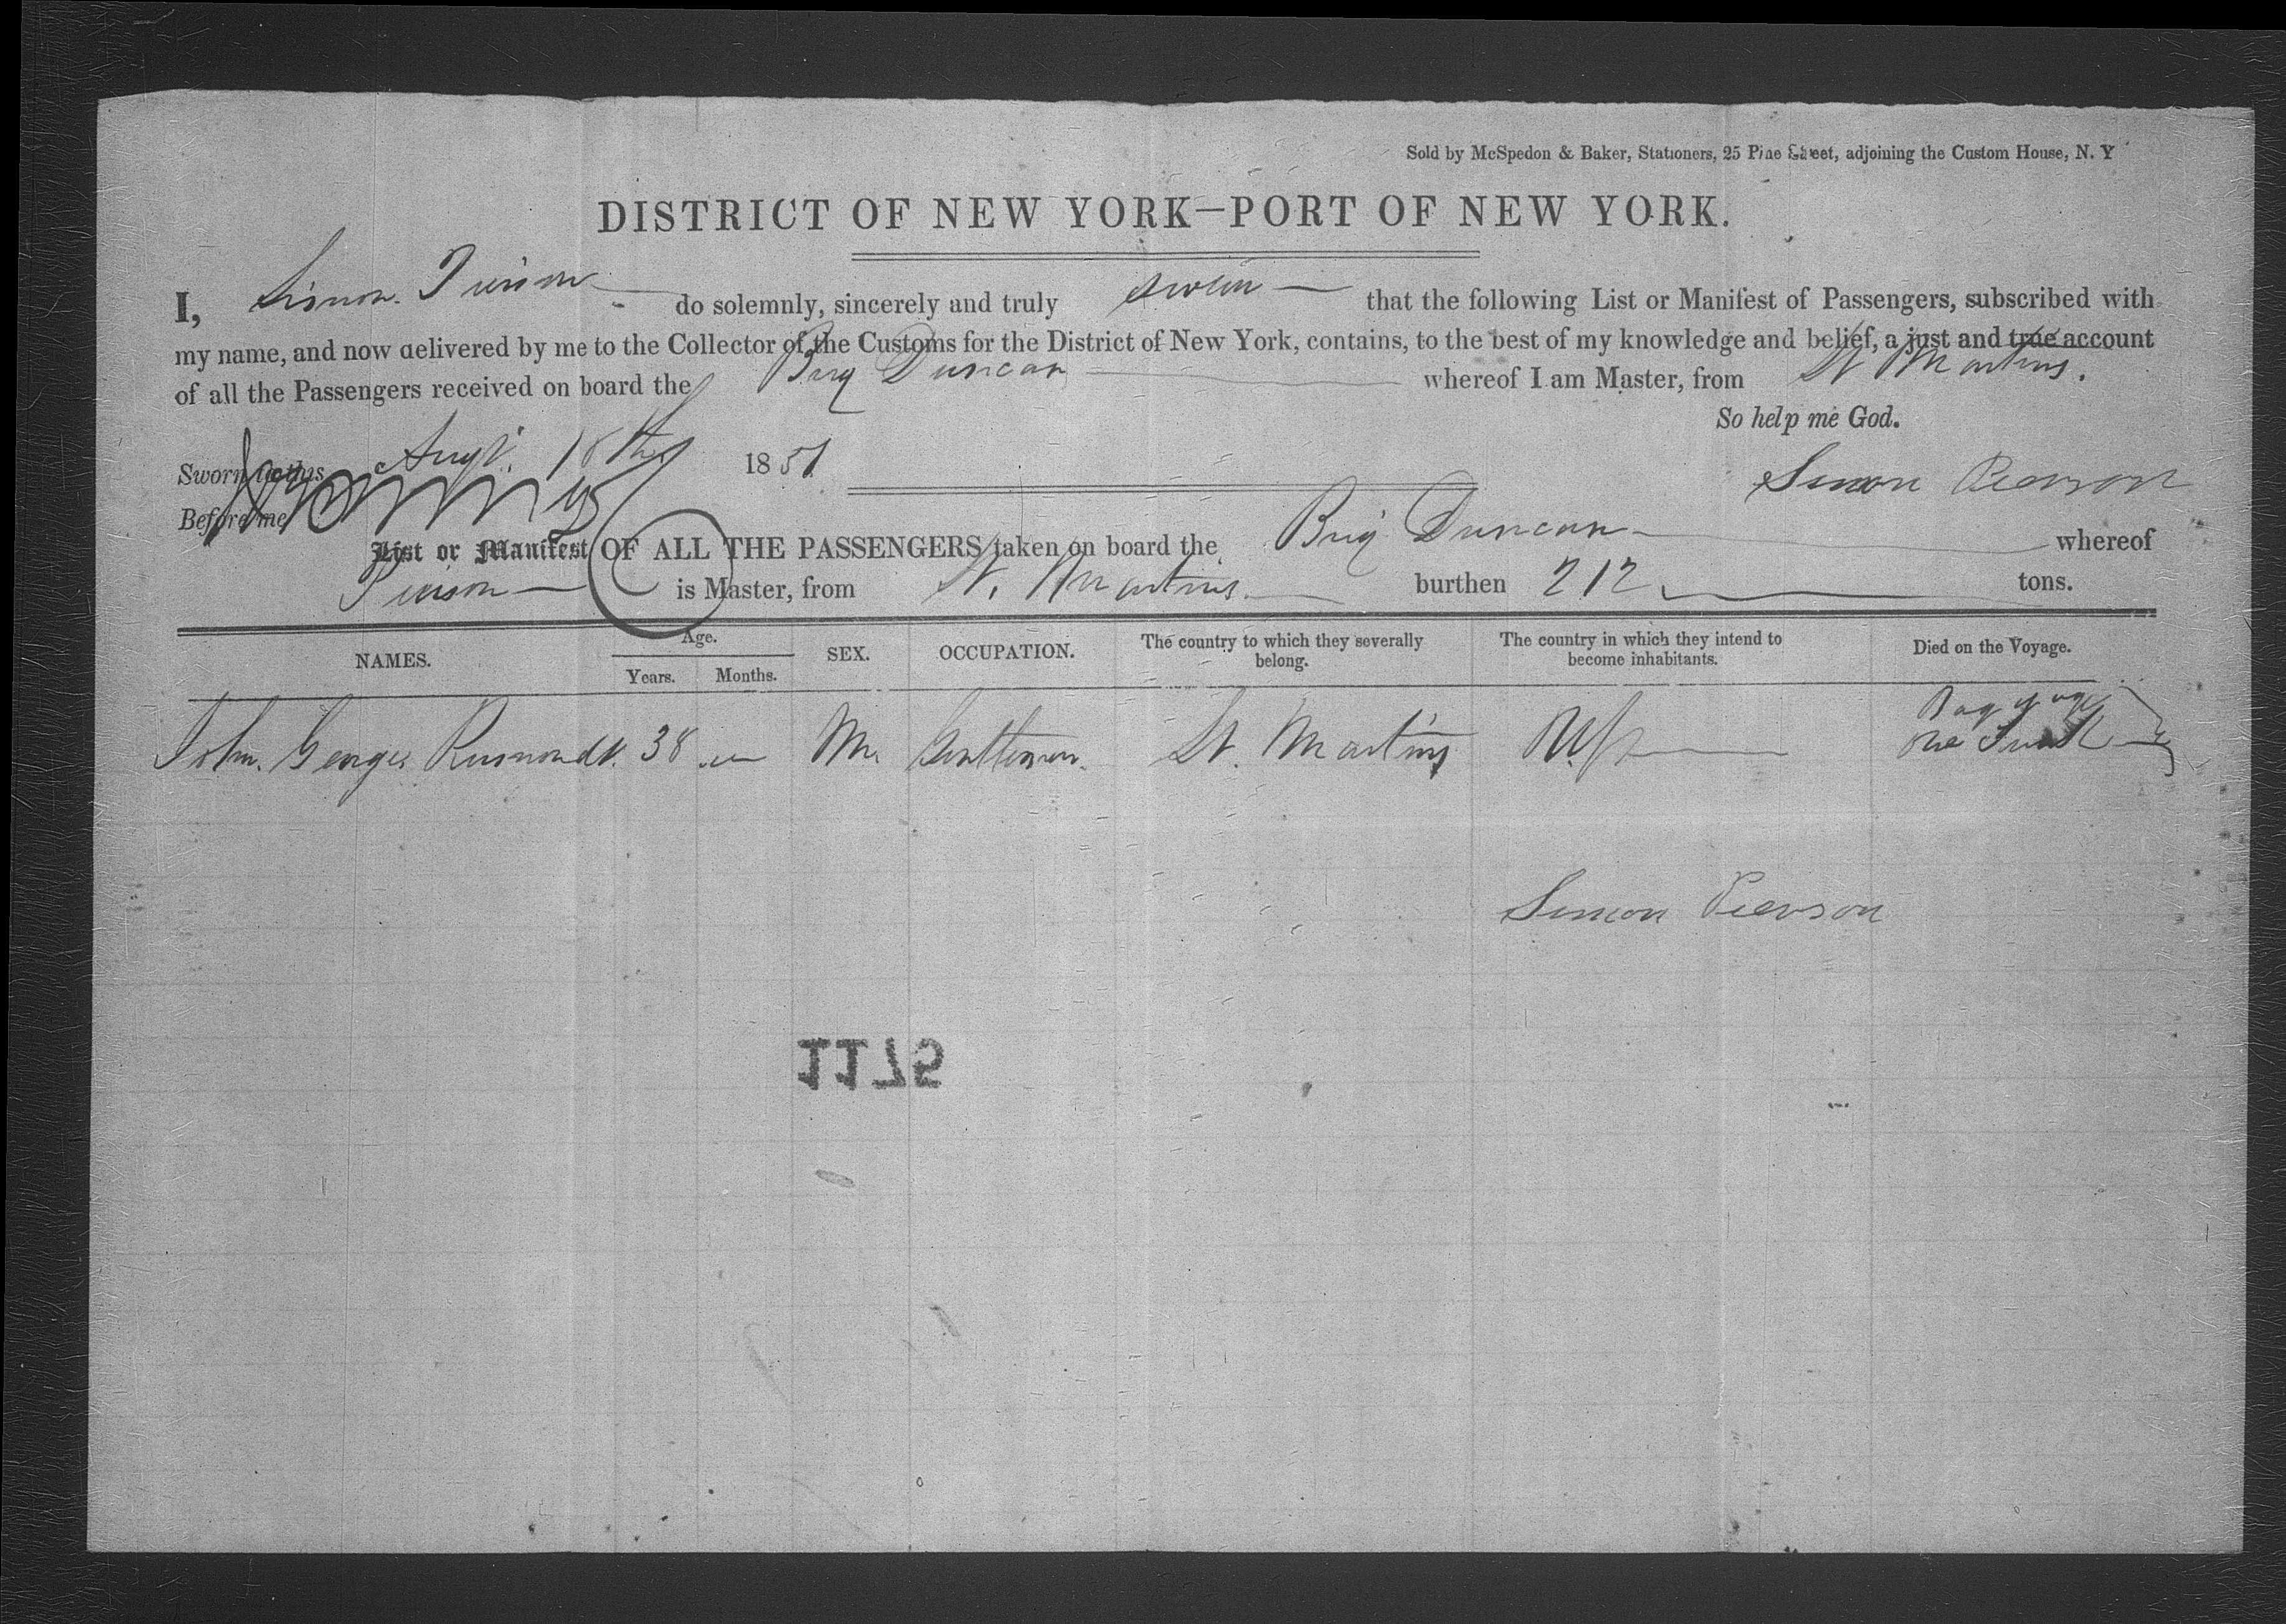 Sold by McSpedon & Baker, Stationers, 25 Pine Street, adjoining the Custom House, N. Y
DISTRICT OF NEW YORK—PORT OF NEW YORK.
I, Simon Pierson do solemnly, sincerely and truly swear that the following List or Manifest of Passengers, subscribed with
my name, and now delivered by me to the Collector of the Customs for the District of New York, contains, to the best of my knowledge and belief, a just and true account
of all the Passengers received on board the Brig Duncan whereof I am Master, from St Martins.
So help me God.
Sworn to this Augt. 18th 1851
Simon Pearson
Before me
List or Manifest OF ALL THE PASSENGERS taken on board the Brig Duncan whereof
Pierson is Master, from St. Martins. burthen 212 tons.
NAMES. Age. Years. Months. SEX. OCCUPATION. The country to which they severally belong. The country in which they intend to become inhabitants. Died on the Voyage.
Baggage
John. George 38 M. Gentleman. St. Martins One Trunk
Simon Pearson
1175